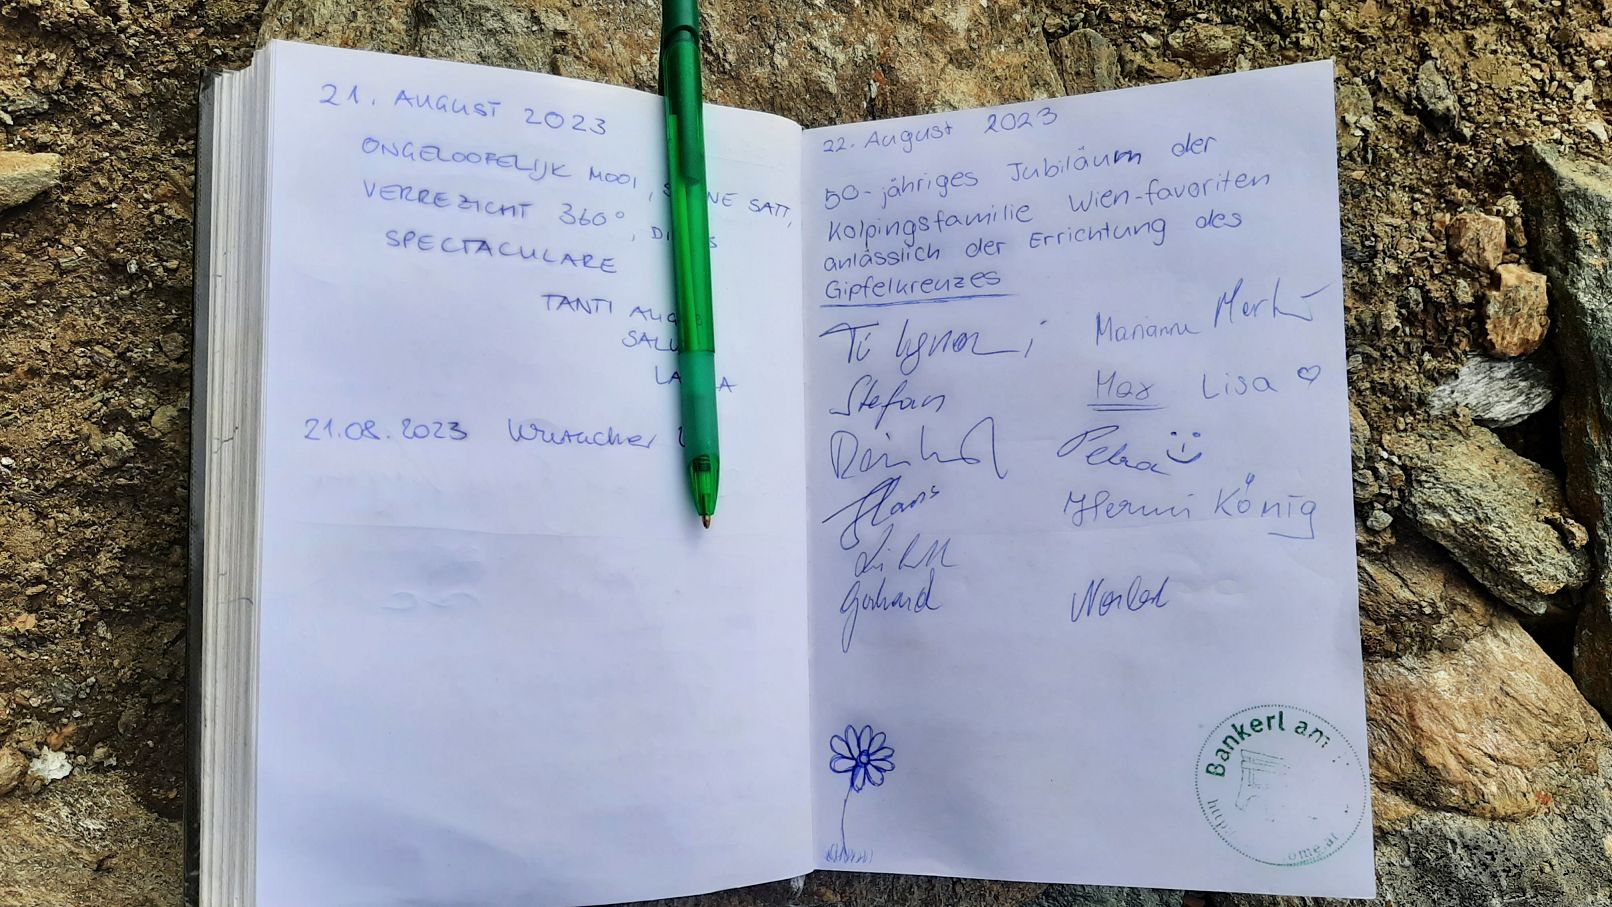 21. AUGUST 2023
ONGELOOFELIJK MOOI,
VERREZICHT 360°,
SPECTACULARE
TANTI
21.08.2023
22. August 2023
50-jähriges Jubiläum der
Kolpingsfamilie Wien-favoriten
anlässlich der Errichtung des
Gipfelkreuzes
Marianne
Stefan
Max Lisa
Petra
Hans
Hermi König
Gerhard
Norbert
Bankerl am
http:
ome.at